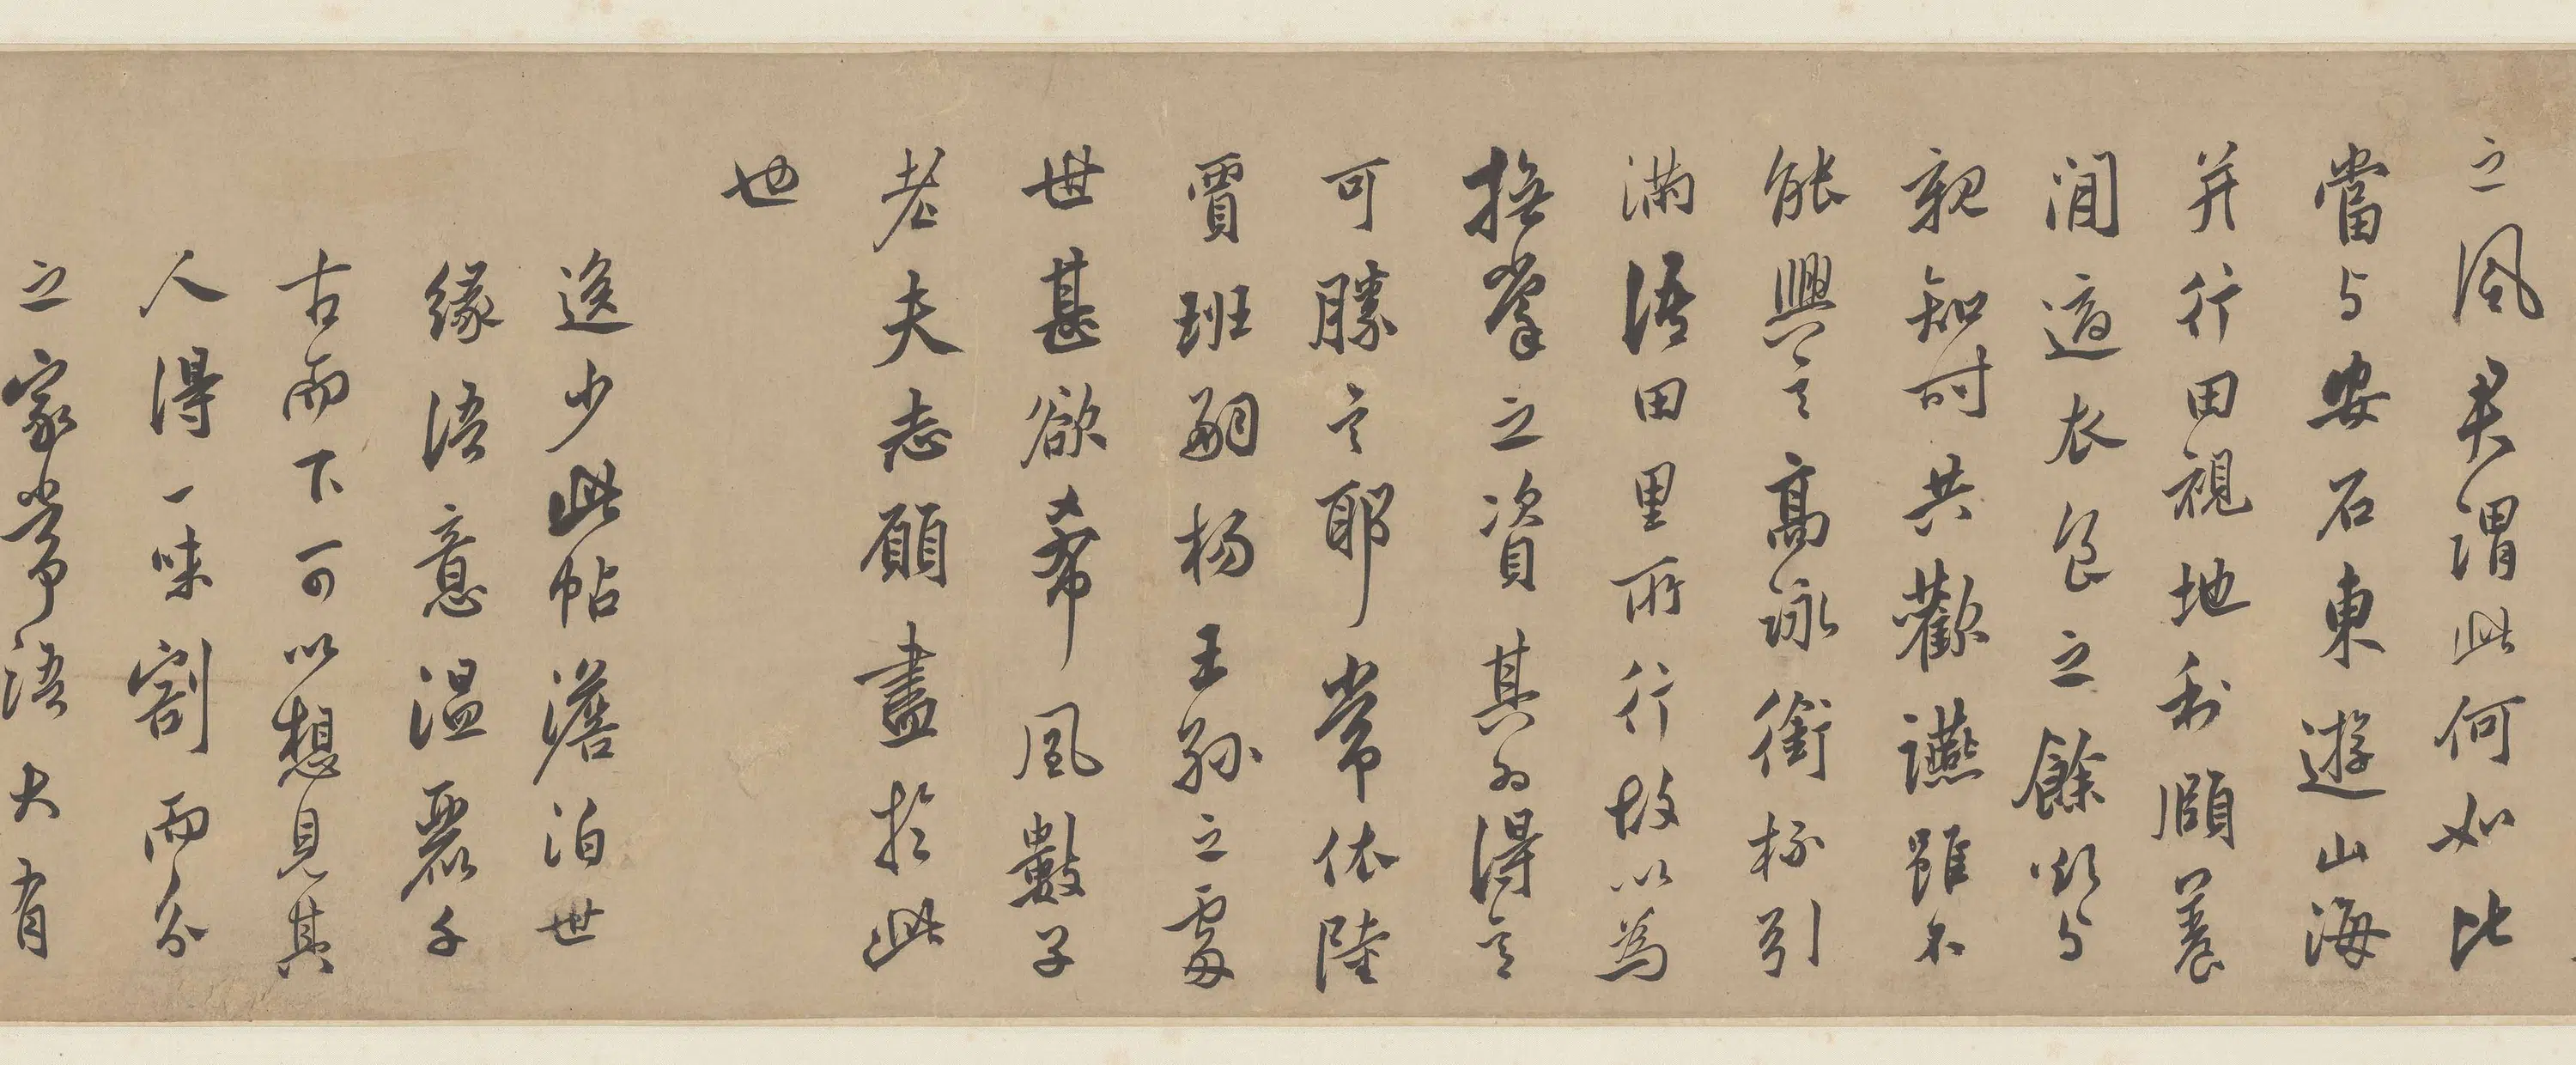 之風君謂此何如比
當与安石東遊山海
并行田視地利頤養
閒適衣食之餘欲与
親知时共歡讌雖不
能興言高詠銜杯引
滿語田里所行故以為
撫掌之資其为得意
可勝言耶常依陸
賈班嗣楊王孫之處
世甚欲希風數子
老夫志願盡於此
也
逸少此帖澹泊世
緣語意温麗千
古而下可以想見其
人得一味割而分
之家常語大有